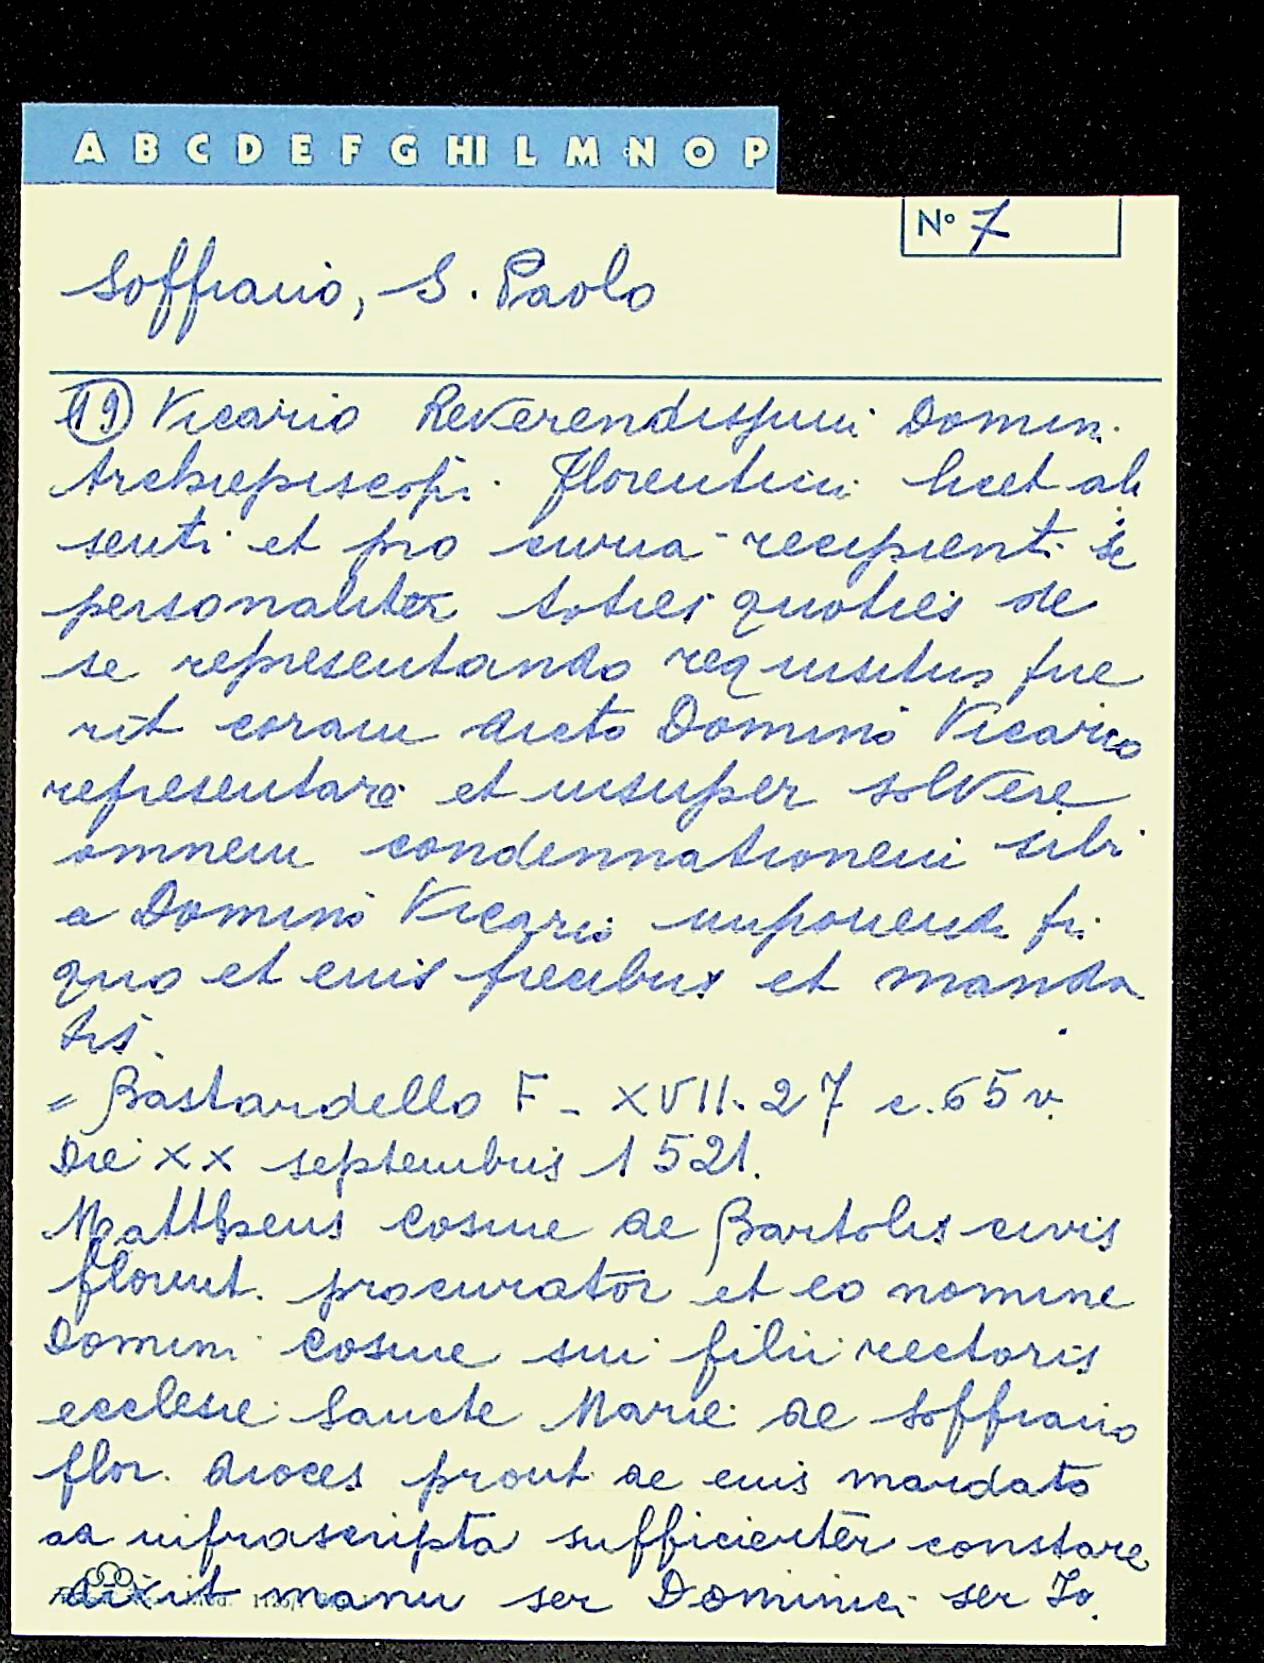 A B C D E F G HI L M N O P
Nº 7
Soffiano, S. Paolo
19 Vicario Reverendissimi Domin.
Archiepiscopi Florentini licet ab
senti et pro curia recipienti se
personaliter toties quoties de
se representando requisitus fue
rit coram dicto Domino Vicario
representare et insuper solvere
omnem condennationem sibi
a Domino Vicario imponend
quo et eius precibus et manda
tis.
= Bastardello F - XVII. 27 c. 65 v.
Die XX septembris 1521.
Mattheus Cosme de Bartolis civis
florent. procurator et eo nomine
Domini Cosme sui filii rectoris
ecclesie Sancte Marie de Soffiano
flor. dioces prout de eius mandato
ad infrascripta sufficienter constare
dixit manu ser Dominici ser Jo.